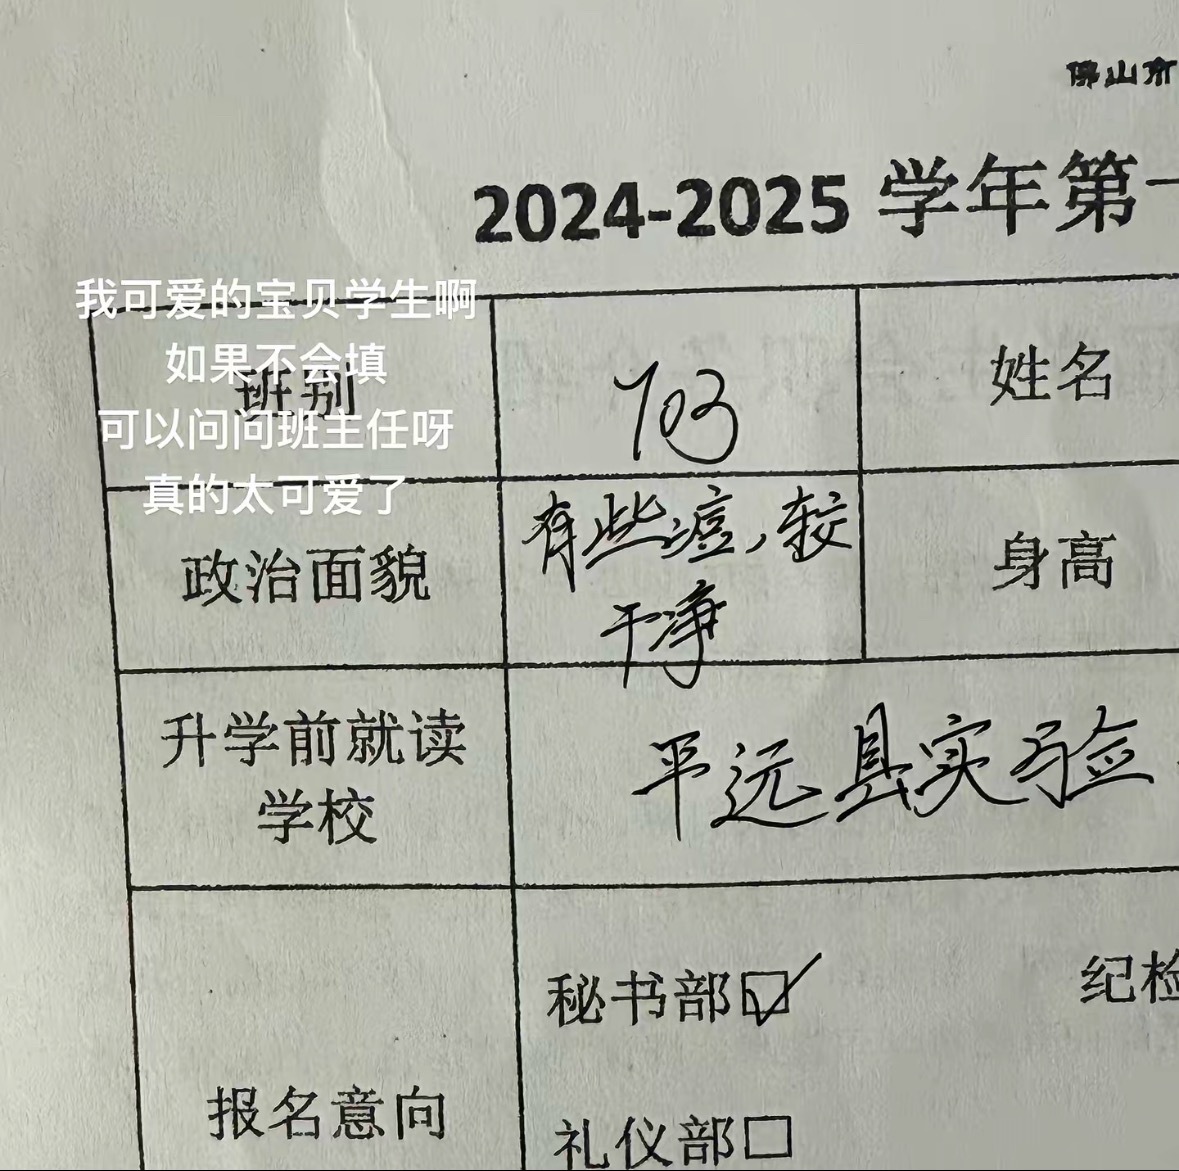 佛山市
2024-2025 学年第一
我可爱的宝贝学生啊
如果不会填
可以问问班主任呀
真的太可爱了
班别
703
姓名
政治面貌
有些痘，较
干净
身高
升学前就读
学校
平远县实验
报名意向
秘书部☑
纪检
礼仪部□